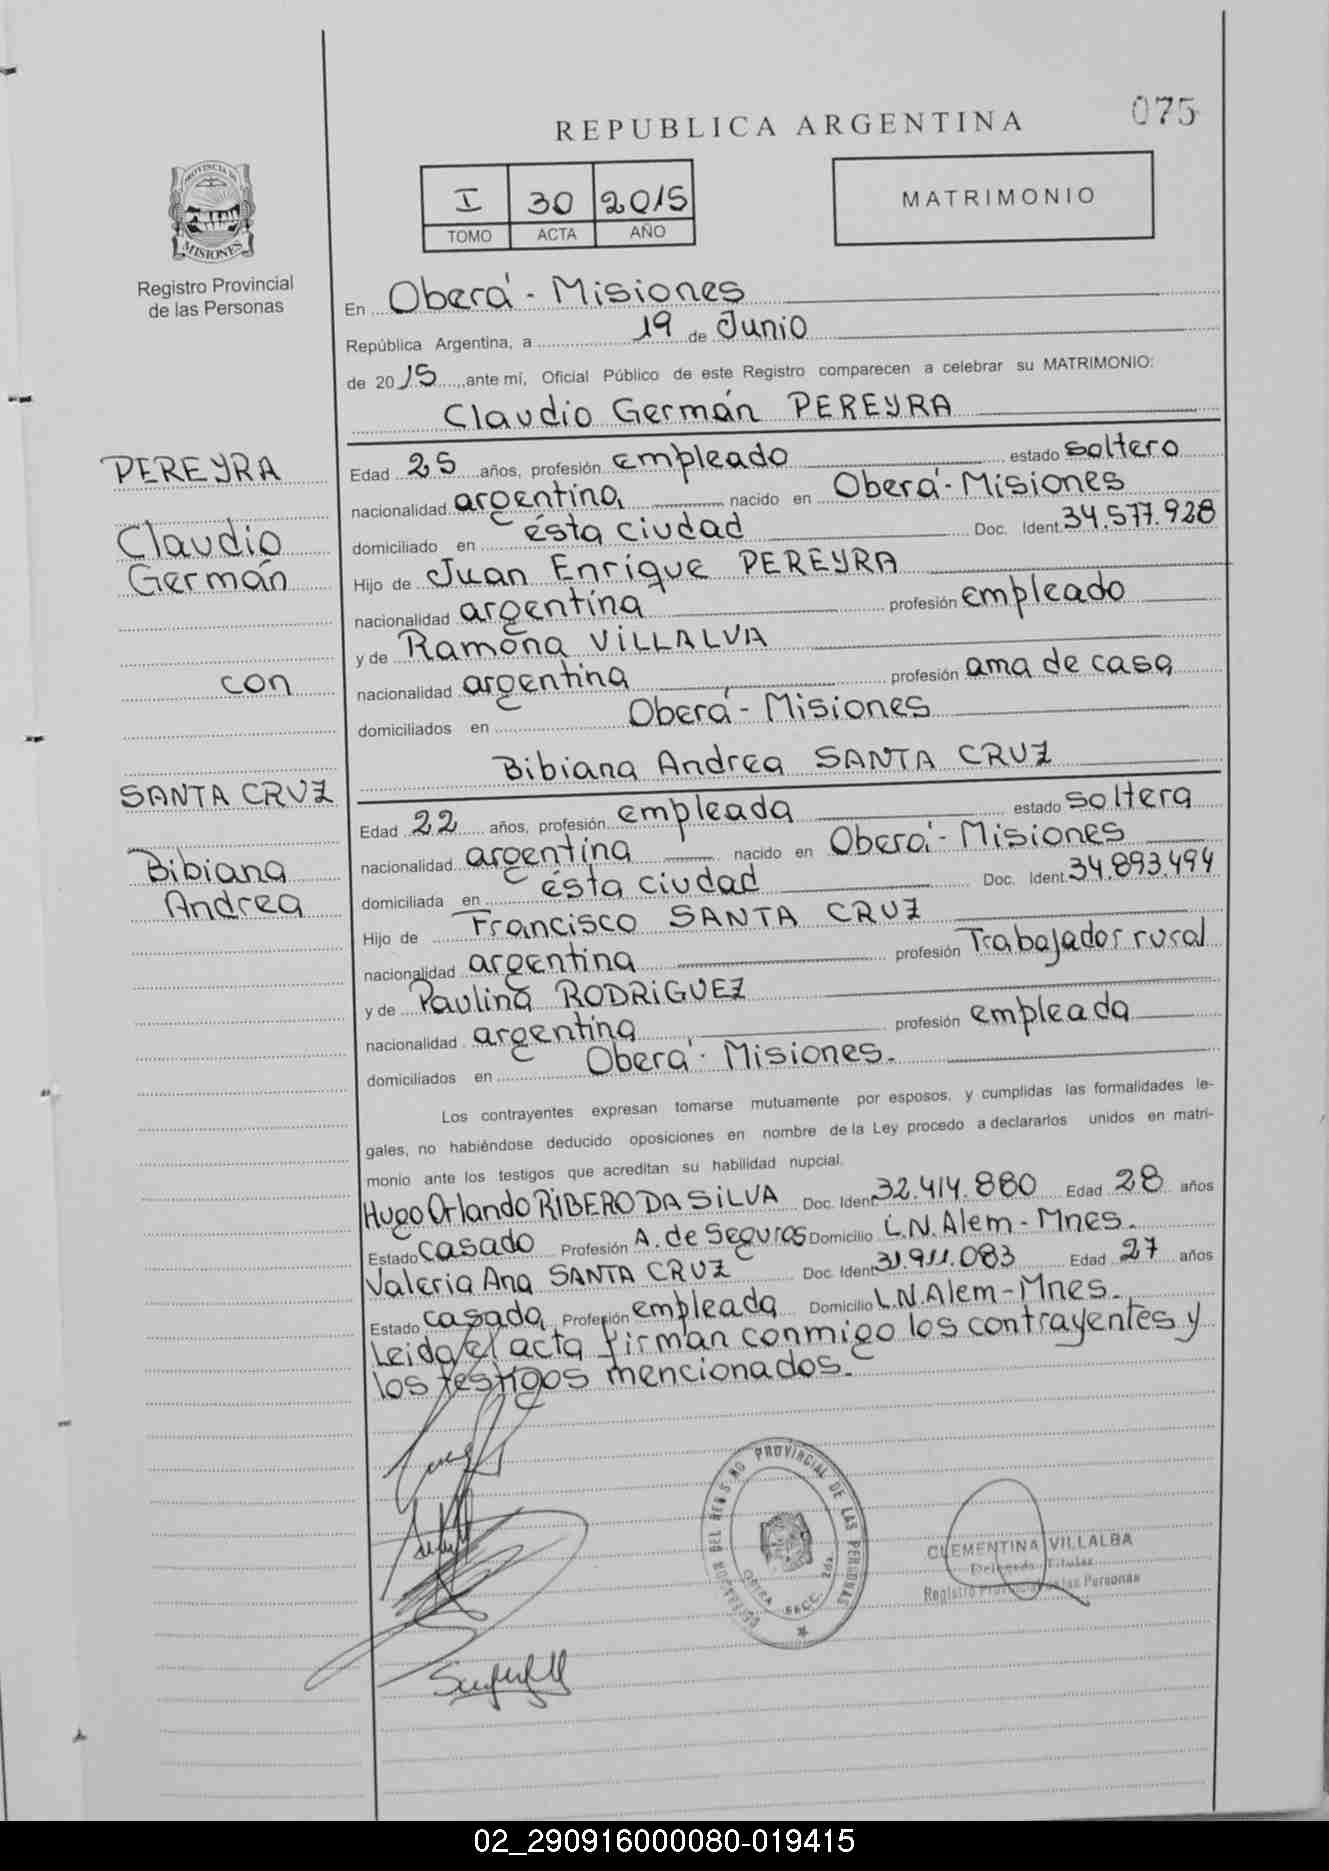 075
REPUBLICA ARGENTINA
PROVINCIA DE
MISIONES
Registro Provincial
de las Personas
I 30 2015
TOMO ACTA AÑO
MATRIMONIO
En Oberá - Misiones
República Argentina, a 19 de Junio
de 2015, ante mí, Oficial Público de este Registro comparecen a celebrar su MATRIMONIO:
Claudio Germán PEREYRA
PEREYRA
Claudio
Germán
con
SANTA CRUZ
Bibiana
Andrea
Edad 25 años, profesión empleado estado soltero
nacionalidad argentina nacido en Oberá - Misiones
domiciliado en ésta ciudad Doc. Ident. 34.577.928
Hijo de Juan Enrique PEREYRA
nacionalidad argentina profesión empleado
y de Ramona VILLALVA
nacionalidad argentina profesión ama de casa
domiciliados en Oberá - Misiones
Bibiana Andrea SANTA CRUZ
Edad 22 años, profesión empleada estado soltera
nacionalidad argentina nacido en Oberá - Misiones
domiciliada en ésta ciudad Doc. Ident. 34.893.494
Hijo de Francisco SANTA CRUZ
nacionalidad argentina profesión Trabajador rural
y de Paulina RODRIGUEZ
nacionalidad argentina profesión empleada
domiciliados en Oberá - Misiones.
Los contrayentes expresan tomarse mutuamente por esposos, y cumplidas las formalidades le-
gales, no habiéndose deducido oposiciones en nombre de la Ley procedo a declararlos unidos en matri-
monio ante los testigos que acreditan su habilidad nupcial.
Hugo Orlando RIBERO DA SILVA Doc. Ident 32.414.880 Edad 28 años
Estado casado Profesión A. de Seguros Domicilio L.N. Alem - Mnes.
Valeria Ana SANTA CRUZ Doc. Ident 31.911.083 Edad 27 años
Estado casada Profesión empleada Domicilio L.N. Alem - Mnes.
Leida el acta firman conmigo los contrayentes y
los testigos mencionados.
PROVINCIAL DE LAS PERSONAS
SECC. 2da.
CLEMENTINA VILLALBA
Delegada Titular
Registro Provincial de las Personas
02_290916000080-019415